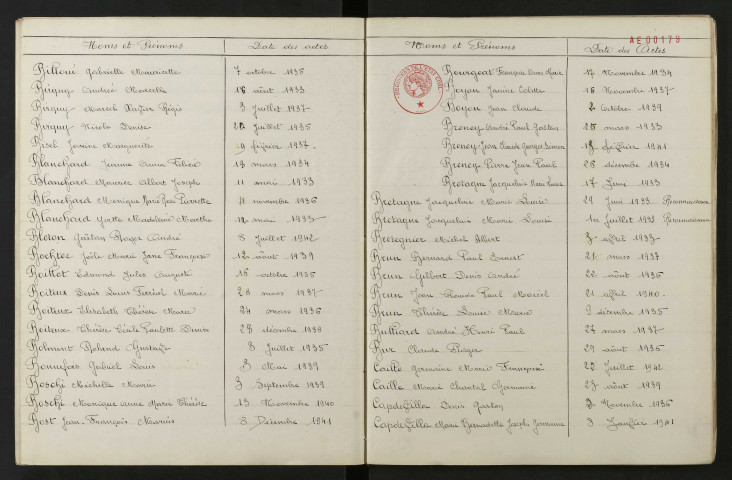 Noms et Prénoms Date des actes
Billoué Gabrielle Mauricette 7 octobre 1935
Birguy André Marcelle 16 août 1933
Birguy Marcel Xavier Régis 3 Juillet 1937
Birguy Nicole Denise 22 Juillet 1935
Bisel Janine Marguerite 9 février 1937
Blanchard Jeanne Anna 13 mars 1934
Blanchard Maurice Albert Joseph 11 mai 1933
Blanchard Monique Marie Jane Pierrette 11 novembre 1936
Blanchard Yvette Madeleine Marthe 12 mai 1933
Bloton Gaëtan Roger André 8 Juillet 1942
Joële Marie Jane Françoise 12 août 1939
Boillot Edmond Jules Auguste 16 octobre 1935
Boiteux Denis Lucien Ferréol Marie 28 mars 1937
Boiteux Elisabeth Thérèse Marie 24 mars 1936
Boiteux Thérèse Cécile Paulette Denise 28 décembre 1938
Bolmont Roland Gustave 8 Juillet 1935
Bonnefoy Gabriel Louis 3 Mai 1939
Boschi Michelle Marie 3 Septembre 1939
Boschi Monique Anne Marie Thérèse 13 Novembre 1940
Bost Jean-François Maurice 8 Décembre 1941
AE00179
Noms et Prénoms Date des Actes
Bourgeat François Marie 17 Novembre 1934
Boyon Janine Colette 16 Novembre 1937
Boyon Jean Claude 2 Octobre 1939
Breney André Paul Gaston 25 mars 1933
Breney Jean Claude Georges 18 février 1941
Breney Pierre Jean Paul 26 décembre 1934
Bretagne Jacqueline Marie Louise 17 Juin 1933
Bretagne Jacqueline Marie Louise 29 Juin 1933 Reconnaissance
Bretagne Jacqueline Marie Louise 1er Juillet 1938 Reconnaissance
Bretegnier Michel Albert 3 avril 1933
Brun Bernard Paul Ernest 21 mars 1937
Brun Gilbert Denis André 22 août 1936
Brun Jean Claude Paul Marcel 21 avril 1940
Brun Thérèse Louise Marie 9 décembre 1935
Bulliard André Henri Paul 27 mars 1937
Bur Claude Roger 29 août 1936
Caille Germaine Marie Françoise 22 Juillet 1942
Caille Marie Chantal Germaine 27 août 1939
Capdefilla Denis Gaston 3 Novembre 1936
Capdefilla Marie Bernadette Josèphe Germaine 3 Janvier 1941